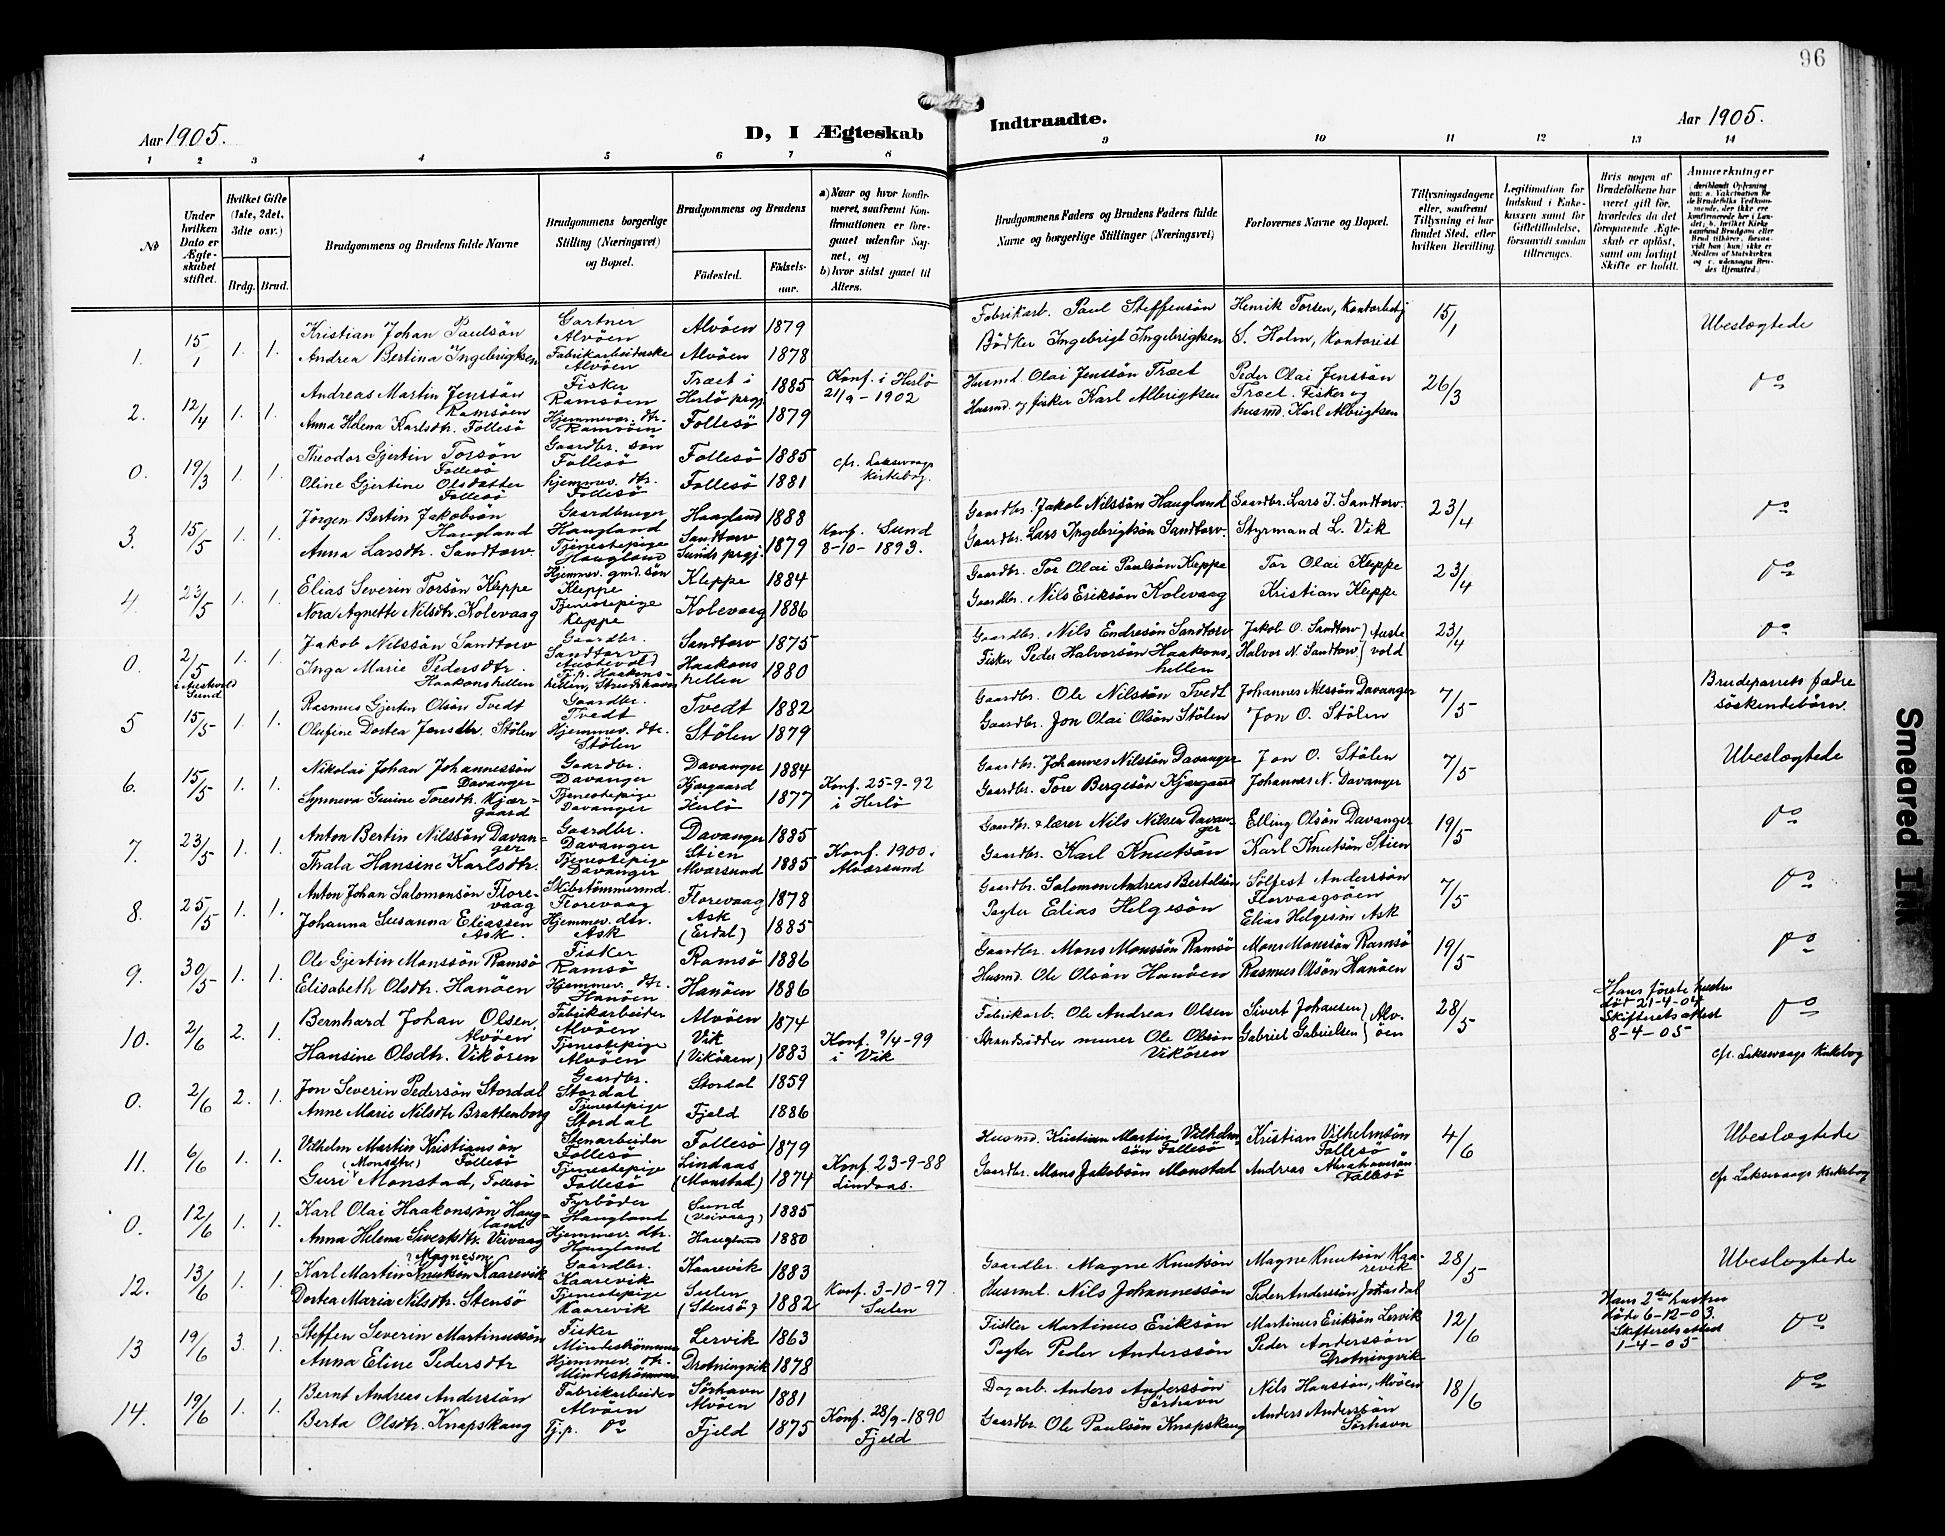 96
Aar 1905.
D, I Ægteskab
Indtraadte.
Aar 1905.
1 2 3 4 5 6 7 8 9 10 11 12 13 14
№
Under hvilken Dato er Ægteskabet stiftet.
Hvilket Gifte (1ste, 2det, 3dte osv.)
Brdg. Brud.
Brudgommens og Brudens fulde Navne
Brudgommens borgerlige Stilling (Næringsvei) og Bopæl.
Brudgommens og Brudens
Födested.
Födselsaar.
a) Naar og hvor konfirmeret, saafremt Konfirmationen er foregaaet udenfor Sognet, og
b) hvor sidst gaaet til Alters.
Brudgommens Faders og Brudens Faders fulde Navne og borgerlige Stillinger (Næringsvei)
Forlovernes Navne og Bopæl.
Tillysningsdagene eller, saafremt Tillysning ei har fundet Sted, efter hvilken Bevilling.
Legitimation for Indskud i Enkekassen samt for Giftetilladelse, forsaavidt saadan tiltrænges.
Hvis nogen af Brudefolkene har været gift før, hvorledes da det foregaaende Ægteskab er opløst, samt om lovligt Skifte er holdt.
Anmærkninger
1. 15/1 1. 1.
Kristian Johan Paulsön Gartner Alvöen Alvöen 1879
Andrea Bertina Ingebrigtsen Fabrikarbeiderske Alvöen Alvöen 1878
Fabrikarb. Paul Steffensön Henrik Torsen, Kontorbetj 15/1 Ubeslægtede
Bödker Ingebrigt Ingebrigtsen S. Holm, Kontorist
2. 12/4 1. 1.
Andreas Martin Jenssön Ramsöen Fisker Ramsöen Træet i Herlö prgj. 1885 Konf. i Herlö 21/9 - 1902
Anna Helena Karlsdtr. Follesö Hjemmev. dtr. Ramsöen Follesö 1879
Husmd. Olai Jenssön Træet Peder Olai Jenssön Træet. Fisker og 26/3 do
Husmd. og fisker Karl Albrigtsen husmd. Karl Albrigtsen
0. 19/3 1. 1.
Theodor Gjertin Torsön Follesö Gaardbr. sön Follesö Follesö 1885 cfr. Laksevaags Kirkebog.
Oline Gjertine Olsdatter Follesö hjemmev. dtr. Follesö Follesö 1881
3. 15/5 1. 1.
Jörgen Bertin Jakobsön Haugland Gaardbruger Haugland Haugland 1888 Konf. Sund 8-10-1893.
Anna Larsdtr. Sandtorv. Tjenestepige Haugland Sandtorv Sunds prgj. 1879
Gaardbr. Jakob Nilssön Haugland Gaardbr. Lars J. Sandtorv. 23/4 do
Gaardbr. Lars Ingebrigtsön Sandtorv. Styrmand L. Vik
4. 23/5 1. 1.
Elias Severin Torsön Kleppe Hjemmev. gmd. sön Kleppe Kleppe 1884
Nora Agnette Nilsdtr. Kolevaag Tjenestepige Kleppe Kolevaag 1886
Gaardbr. Tor Olai Paulsön Kleppe Tor Olai Kleppe 23/4 do
Gaardbr. Nils Eriksön Kolevaag Kristian Kleppe
0. 2/5 i Austevold Sund 1. 1.
Jakob Nilssön Sandtorv Gaardbr. Sandtorv Austevold Sandtorv 1875
Inga Marie Pedersdtr. Haakonshellen Tj.p. Haakonshellen, Strudshavn Haakonshellen 1880
Gaardbr. Nils Endresön Sandtorv Jakob O. Sandtorv } Austevold 23/4 do
Fisker Peder Halvorsön Haakonshellen Halvor N. Sandtorv
5 15/5 1. 1.
Rasmus Gjertin Olsön Tvedt Gaardbr. Tvedt Tvedt 1882
Olufine Dortea Jonsdtr. Stölen Hjemmev. dtr. Stölen Stölen 1879
Gaardbr. Ole Nilssön Tvedt Johannes Nilssön Davanger 7/5 Brudeparrets fædre söskendebörn.
Gaardbr. Jon Olai Olsön Stölen Jon O. Stölen
6. 15/5 1. 1.
Nikolai Johan Johannessön Davanger Gaardbr. Davanger Davanger 1884
Synneva Gurine Toresdtr. Kjærgaard Tjenestepige Davanger Kjærgaard Herlö 1877 Konf. 25-9-92 i Herlö
Gaardbr. Johannes Nilssön Davanger Jon O. Stölen 7/5 Ubeslægtede
Gaardbr. Tore Bergesön Kjærgaard Johannes N. Davanger
7. 23/5 1. 1.
Anton Bertin Nilssön Davanger Gaardbr. Davanger Davanger 1885
Thala Hansine Karlsdtr. Tjenestepige Davanger Stien Alværsund 1885 Konf. 1900 i Alværsund
Gaardbr. & lærer Nils Nilsen Davanger Elling Olsön Davanger 19/5 do
Gaardbr. Karl Knutsön Karl Knutsön Stien
8. 25/5 1. 1.
Anton Johan Salomonsön Florevaag Skibstömmermd. Florevaag Florevaag 1878
Johanna Susanna Eliassen Ask. Hjemmev. dtr. Ask Ask (Erdal) 1885
Gaardbr. Salomon Andreas Bertelsön Sölfest Anderssön Florvaagsöen 7/5 do
Pagter Elias Helgesön Elias Helgesön Ask
9. 30/5 1. 1.
Ole Gjertin Monssön Ramsö Fisker Ramsö Ramsö 1886
Elisabeth Olsdtr. Hanöen Hjemmev. dtr. Hanöen Hanöen 1886
Gaardbr. Mons Monssön Ramsö Mons Monssön Ramsö 19/5 do
Husmd. Ole Olsön Hanöen Rasmus Olsön Hanöen
10. 2/6 2. 1.
Bernhard Johan Olsen, Alvöen Fabrikarbeider Alvöen Alvöen 1874
Hansine Olsdtr. Vikören Tjenestepige Alvöen Vik (Vikören) 1883 Konf. 9/4-99 i Vik
Fabrikarb. Ole Andreas Olsen Sivert Johansen } Alvöen 28/5 Hans förste hustru död 21-4-04 Skifterets attest 8-4-05 do
Strandsidder murer Ole Olsön Vikören Gabriel Gabrielsen
0. 2/6 2. 1.
Jon Severin Pedersön Stordal Gaardbr. Stordal Stordal 1859 cfr. Laksevaags Kirkebog
Anne Marie Nilsdtr Brattenborg Tjenestepige Stordal Fjeld 1886
11. 6/6 1. 1.
Vilhelm Martin Kristiansön Follesö Stenarbeider Follesö Follesö 1879
Guri (Monsdtr.) Monstad, Follesö Tjenestepige Follesö Lindaas (Monstad) 1874 Konf. 23-9-88 Lindaas.
Husmd. Kristian Martin Vilhelmsön Follesö Kristian Vilhelmsön Follesö 4/6 Ubeslægtede
Gaardbr. Mons Jakobsön Monstad Andreas Abrahamsön Follesö
0. 12/6 1. 1.
Karl Olai Haakonsön Haugland Fyrböder Haugland Sund (Veivaag) 1885 cfr Laksevaags Kirkebog
Anna Helena Sivertsdtr. Veivaag Hjemmev. dtr. Haugland Haugland 1880
12. 13/6 1. 1.
Karl Martin Knutsön Magneson Kaarevik Gaardbr. Kaarevik Kaarevik 1883
Dortea Maria Nilsdtr. Stensö Tjenestepige Kaarevik Sulen (Stensö) 1882 Konf. 3-10-97 Sulen
Gaardbr. Magne Knutsön Magne Knutsön Kaarevik 28/5 Ubeslægtede
Husmd. Nils Johannessön Peder Anderssön
13 19/6 3. 1.
Steffen Severin Martinussön Fisker Lervik 1863
Anna Eline Pedersdtr Hjemmev. dtr. Drotningvik 1878
Fisker Martinus Eriksön Martinus Eriksön Lervik 12/6 Hans 2den hustru döde 6-12-03. Skifterets attest 1-4-05 do
Pagter Peder Anderssön Peder Anderssön Drotningvik
14. 19/6 1. 1.
Bernt Andreas Anderssön Fabrikarbeider Alvöen Sörhavn Alvöen 1881
Berta Olsdtr. Knapskaug Tj.p. do Fjeld 1875 Konf. 28/9-1890 Fjeld
Dagarb. Anders Anderssön Sörhavn Nils Hanssön, Alvöen 18/6 do
Gaardbr. Ole Paulsön Knapskaug Anders Anderssön Sörhavn
Smeared Ink